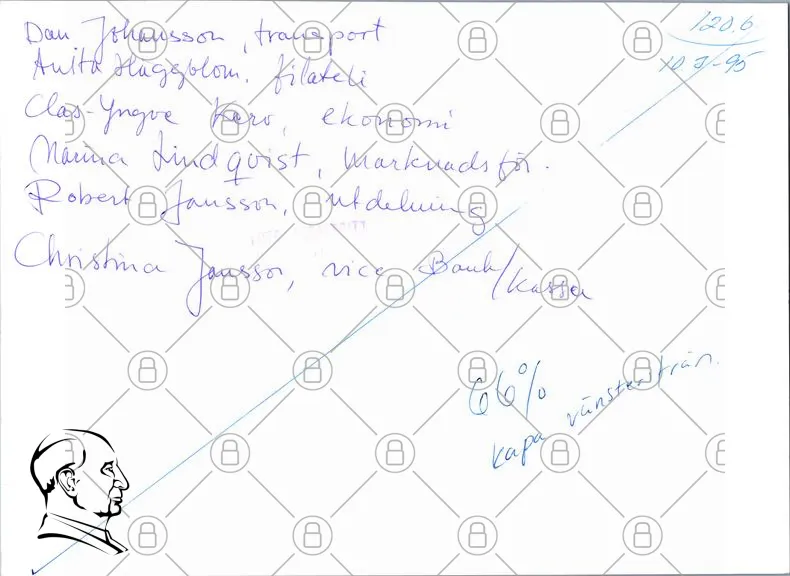 Dan Johansson, transport
Anita Häggblom, filateli
Clas-Yngve Karo, ekonomi
Marina Lindqvist, marknadsför.
Robert Jansson, utdelning
Christina Jansson, vice Bank/kassa
120.6
10 3/-95
66%
kapa vänsterifrån.